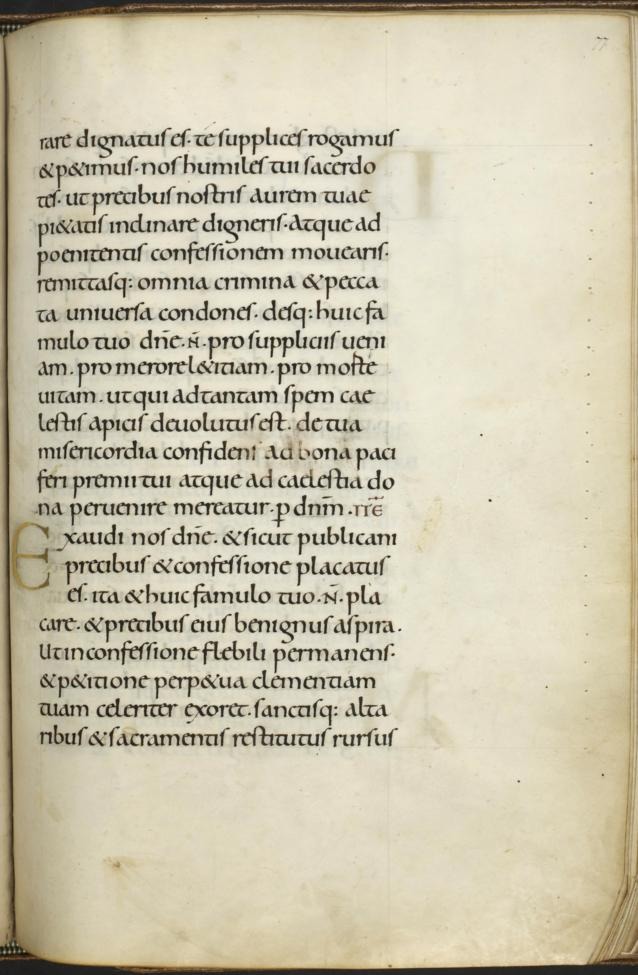 77
rare dignatus es. te supplices rogamus
& p&imus. nos humiles tui sacerdo
tes. ut precibus nostris aurem tuae
pi&atis inclinare digneris. Atque ad
poenitentis confessionem mouearis.
remittasq: omnia crimina & pecca
ta universa condones. desq: huic fa
mulo tuo dn̄e. N̄. pro suppliciis ueni
am. pro merore l&itiam. pro morte
uitam. ut qui ad tantam spem cae
lestis apicis deuolutus est. de tua
misericordia confidens ad bona paci
feri premii tui atque ad caelestia do
na peruenire mereatur. p dnm̄. TTĒ
Exaudi nos dn̄e. & sicut publicani
precibus & confessione placatus
es. ita & huic famulo tuo. N̄. pla
care. & precibus eius benignus aspira.
Ut in confessione flebili permanens.
& p&itione perp&ua clementiam
tuam celeriter exoret. sanctisq: alta
ribus & sacramentis restitutus rursus